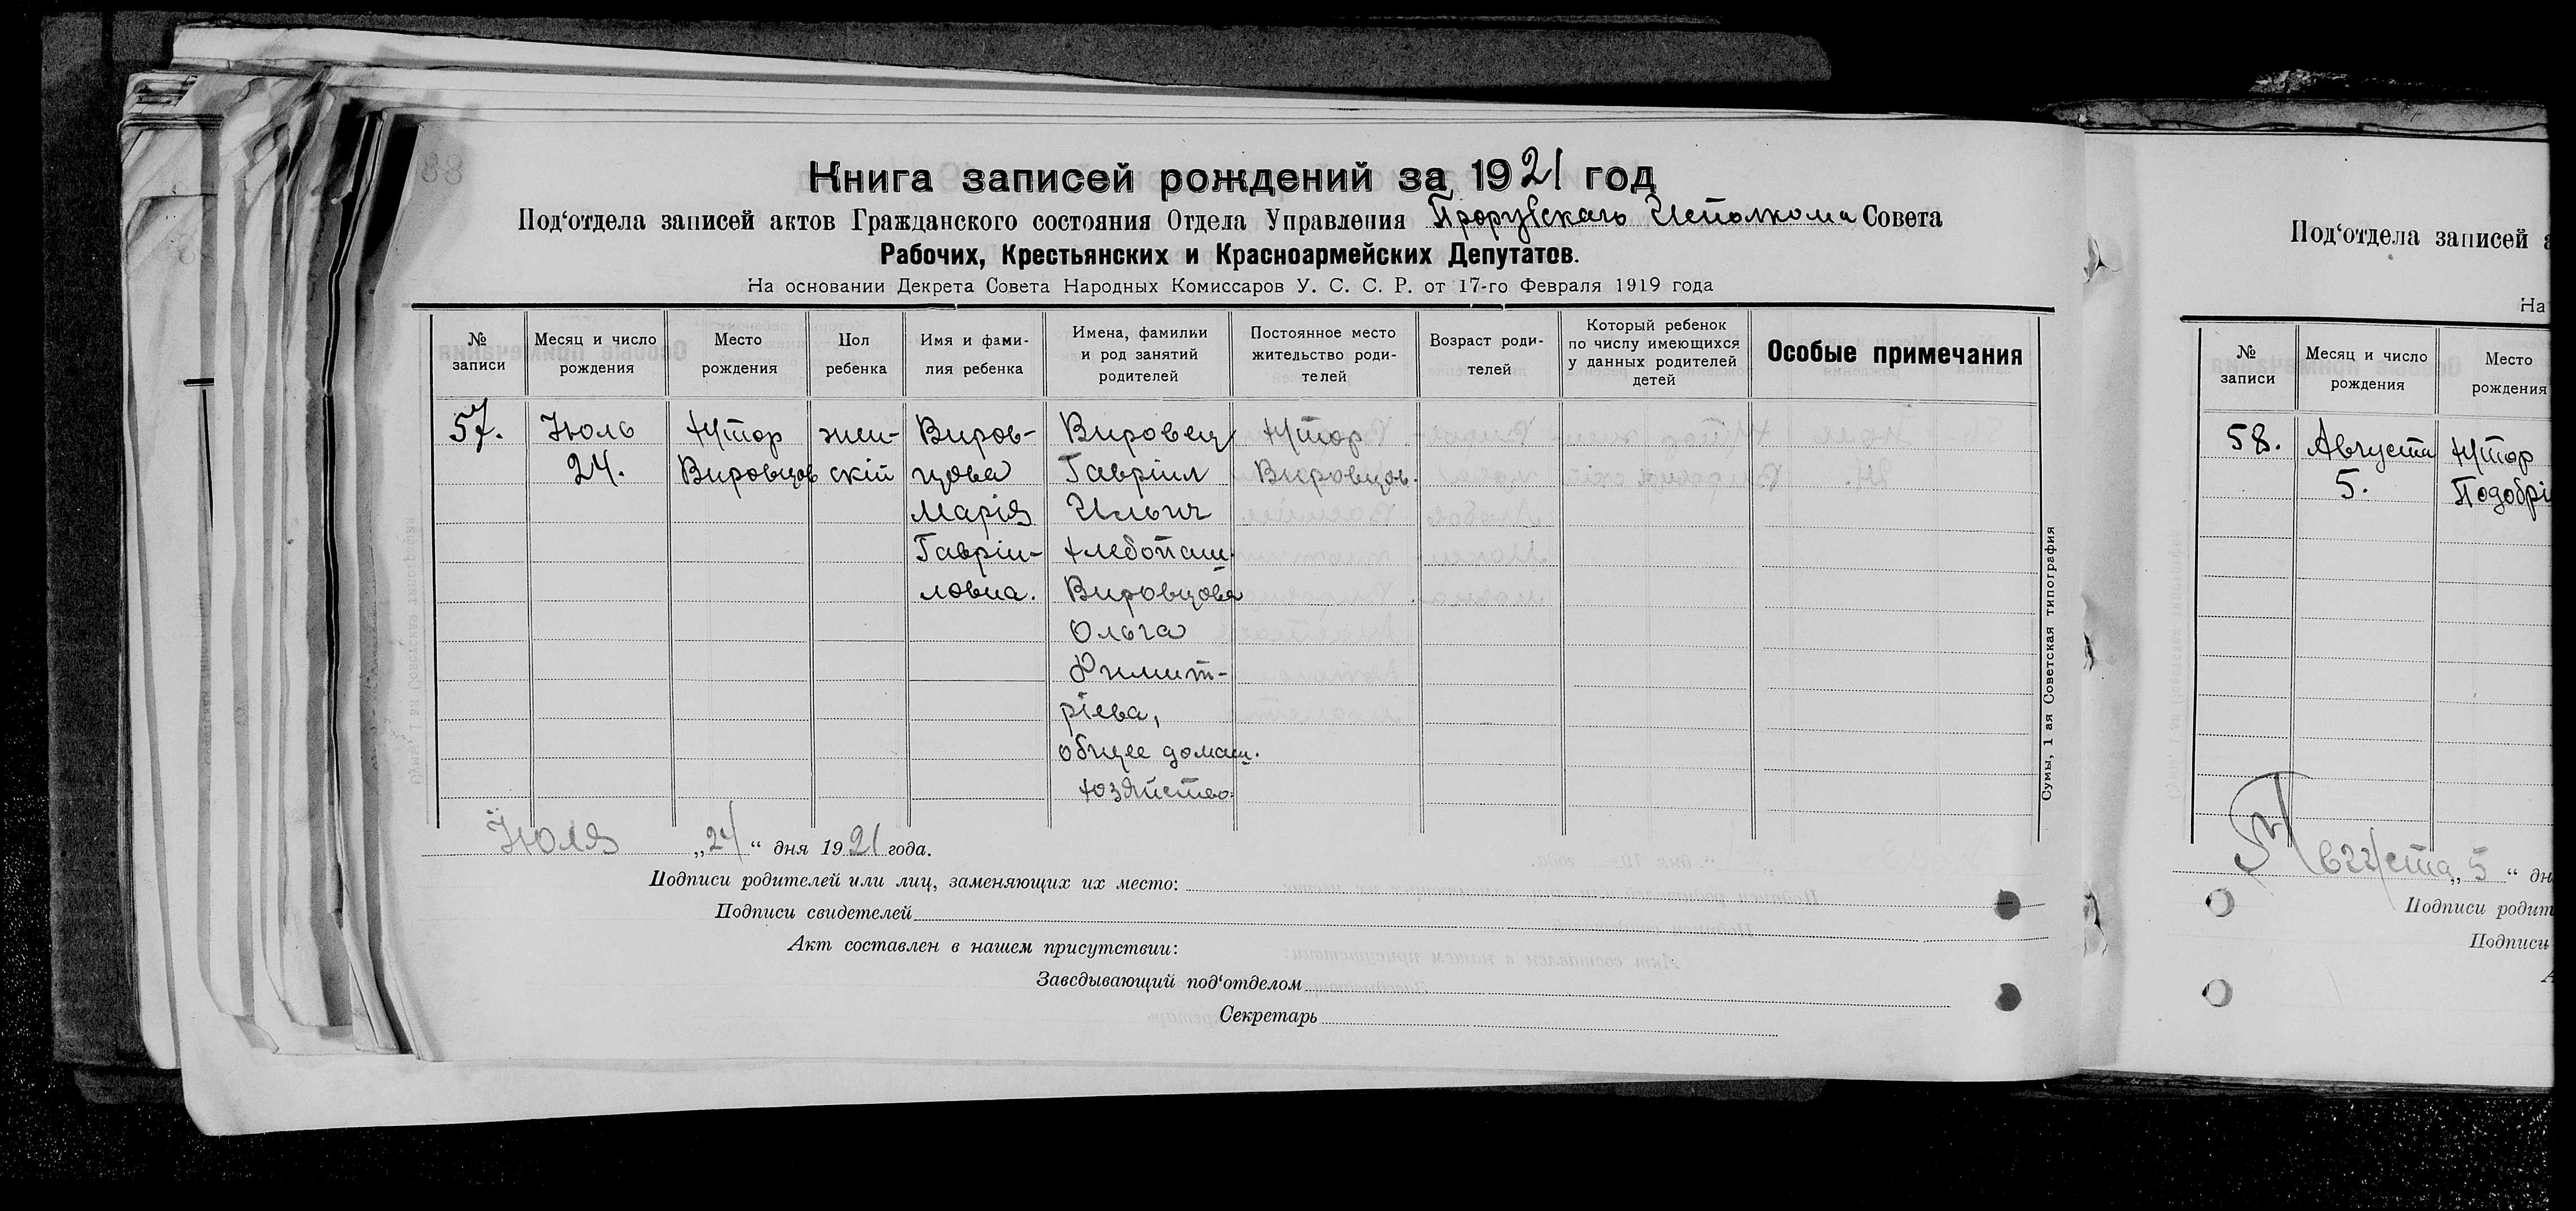 Книга записей рождений за 1921 год
Под‘отдела записей актов Гражданского состояния Отдела Управления Прорубскаго Исполкома Совета
Рабочих, Крестьянских и Красноармейских Депутатов.
На основании Декрета Совета Народных Комиссаров У. С. С. Р. от 17-го Февраля 1919 года
№ записи
Месяц и число рождения
Место рождения
Пол ребенка
Имя и фами-
лия ребенка
Имена, фамилии
и род занятий
родителей
Постоянное место
жительство роди-
телей
Возраст роди-
телей
Который ребенок
по числу имеющихся
у данных родителей
детей
Особые примечания
57.
Июль
24.
Хутор
Вировцов
жен-
скій
Виров-
цова
Марія
Гавріи-
ловна.
Вировец
Гавріил
Ильич
хлебопаш.
Вировцова
Ольга
Димит-
ріева,
общее домаш.
хозяйство.
Хутор
Вировцов.
Июля „24“ дня 1921 года.
Подписи родителей или лиц, заменяющих их место:
Подписи свидетелей
Акт составлен в нашем присутствии:
Заведывающий под‘отделом
Секретарь
Сумы, 1 ая Советская типография
Под‘отдела записей
На
№
записи
Месяц и число
рождения
Место
рождения
58.
Августа
5.
Хутор
Августа „5“ дн
Подписи родит
Подписи